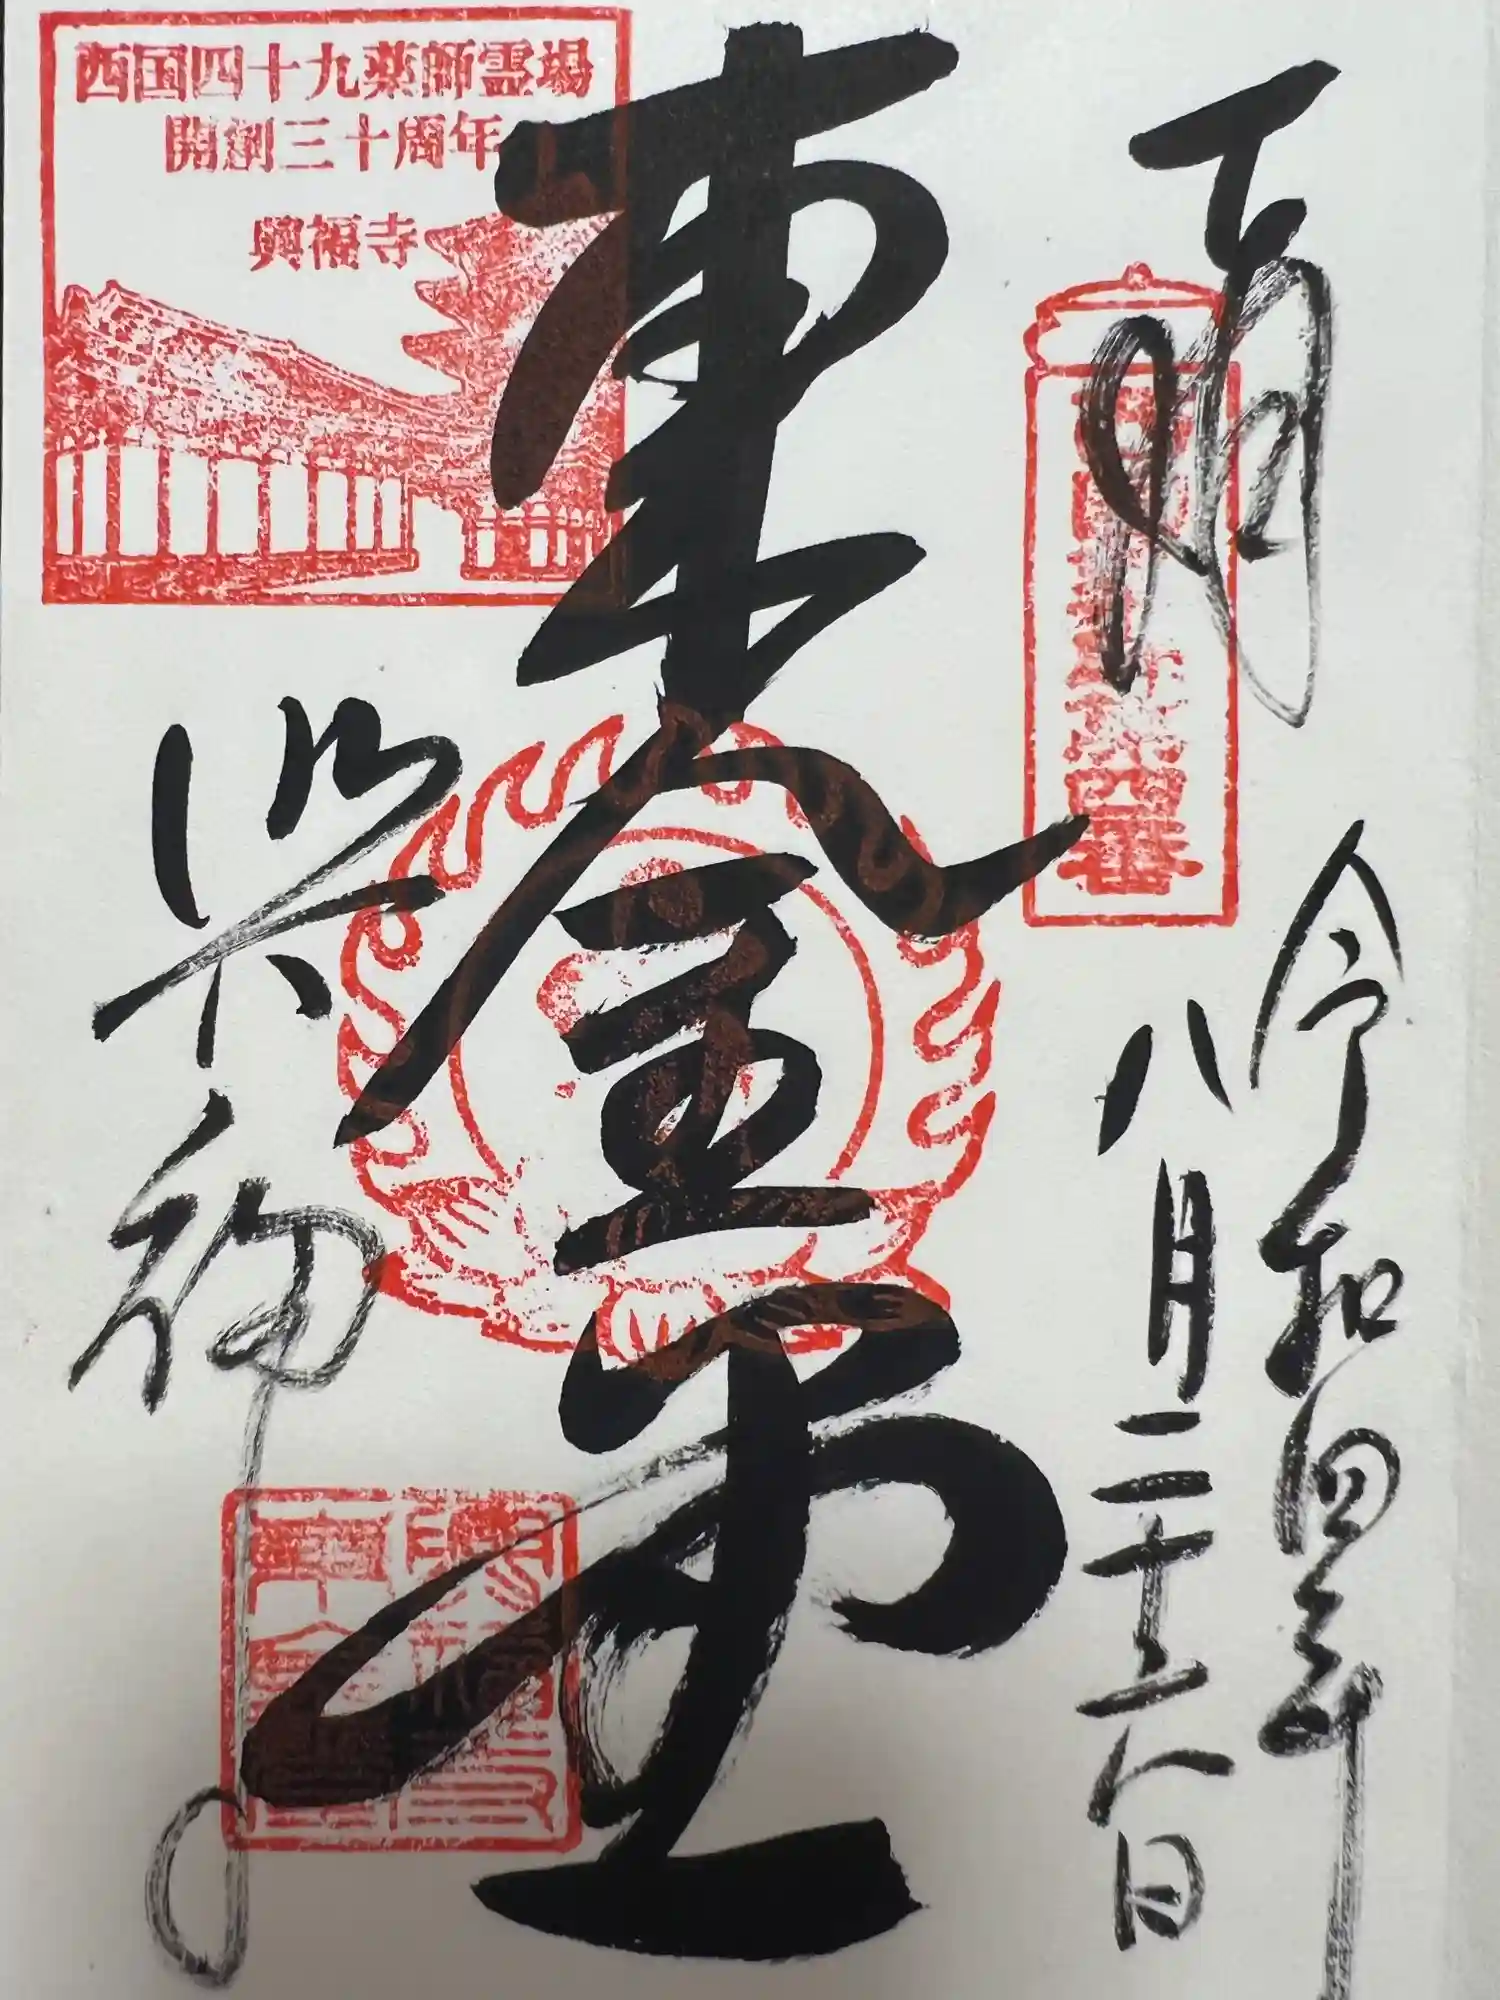 西国四十九薬師霊場
開創三十周年
興福寺
令和四年
八月二十六日
四番
東金堂
興福寺